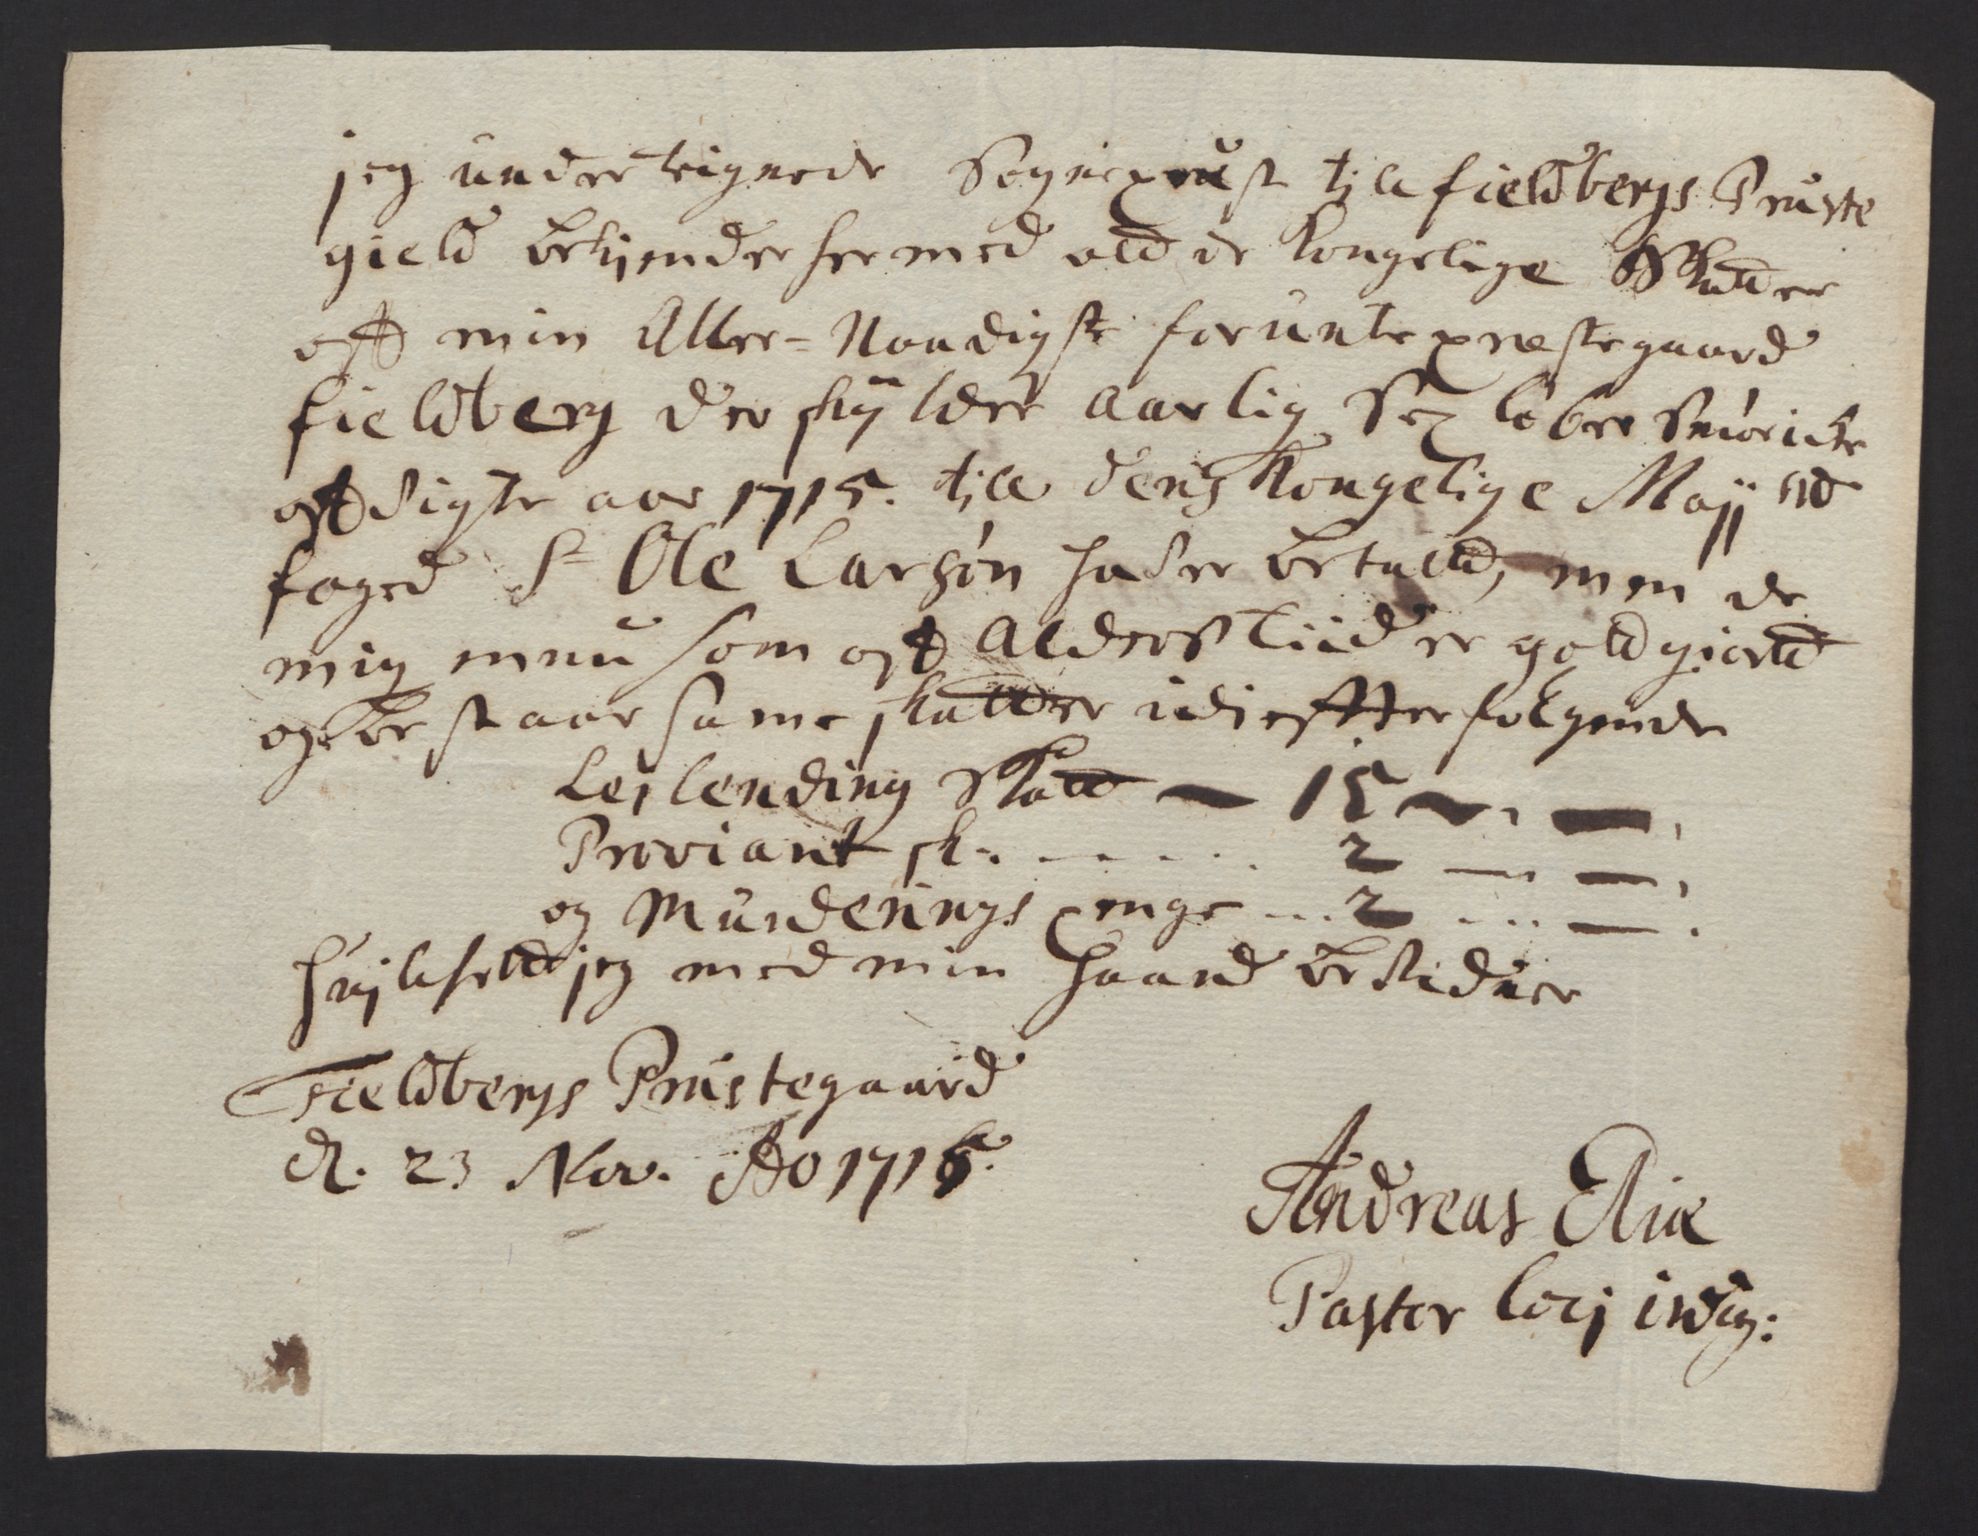 jeg underteignede Sogneprest till fieldbergs Præste
gield bekjender hermed att de Kongelige Skatter
aff min Aller-Naadigste forunte præstegaard
fieldberg der skylder aarlig Sex løber Smør icke
aff sigte aar 1715. till dens Kongelige Majj
foged Sr Ole Larsøn hafer betalld, men de
mig ennu som aff Alders tiid er gotgiortt
og bestaar same skatter i di effterfølgende
Lejlending Skatt — 15 — —
Proviant sk: ..... 2 — —
og Munderings penge ... 2 ... —
huilchett jeg med min haand bestidner
Fieldbergs Præstegaard
d. 23 Nov. Ao 1715.
Andreas Eliæ
Pastor locj indig: